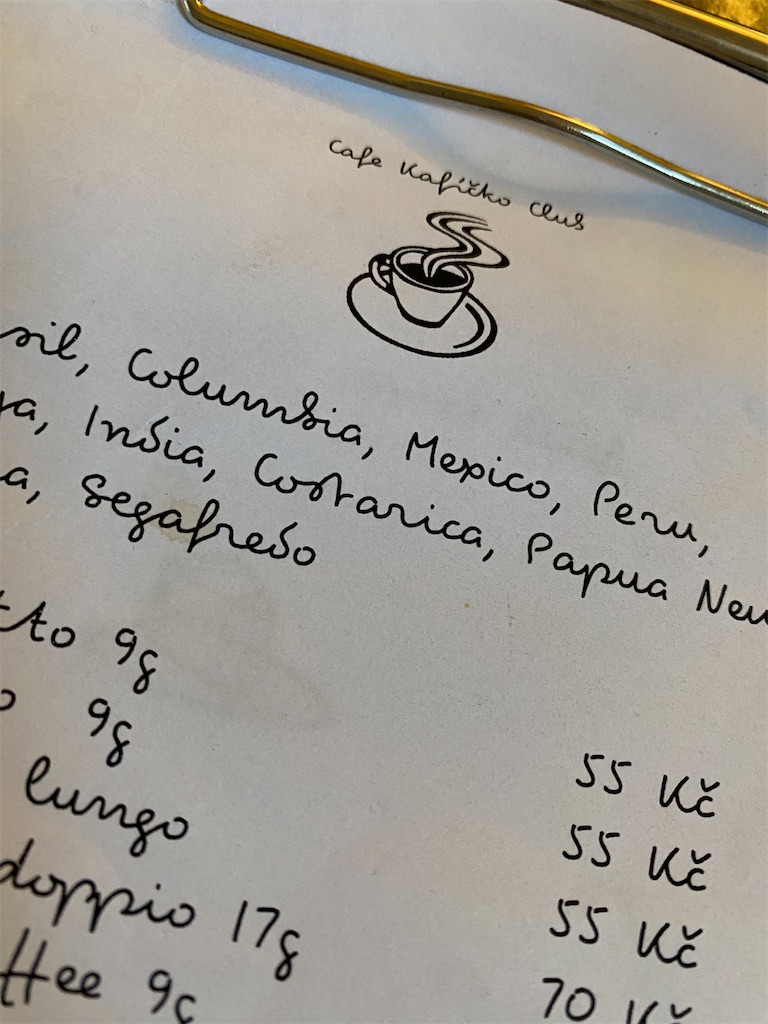 Cafe Kafíčko Club
sil, Columbia, Mexico, Peru,
India, Costarica, Papua New
a, Segafredo
tto 9g
o 9g 55 Kč
lungo 55 Kč
doppio 17g 55 Kč
ffee 9g 70 Kč